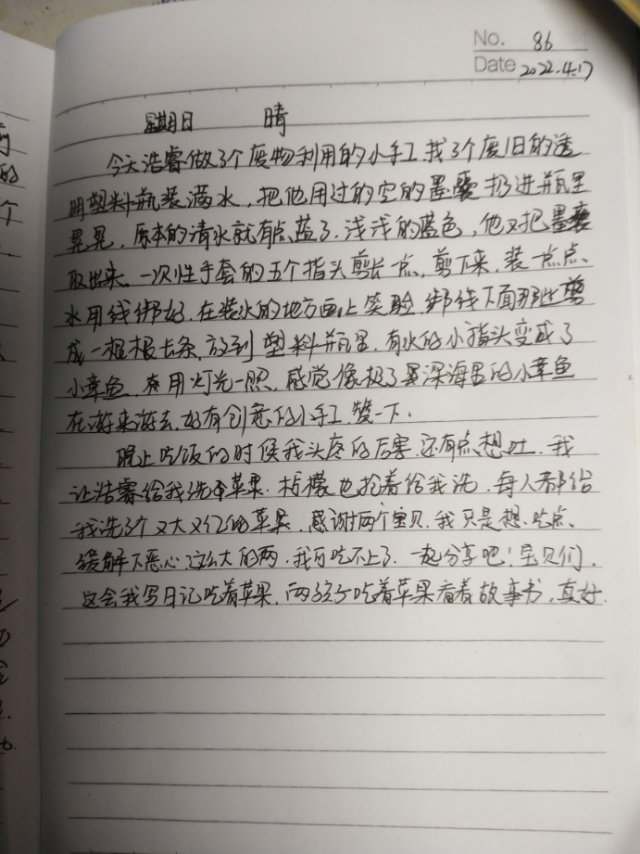 No. 86
Date 2022.4.17
星期日 晴
今天浩睿做了个废物利用的小手工.找了个废旧的透
明塑料瓶装满水，把他用过的空的墨囊扔进瓶里
晃晃，原本的清水就有点蓝了.浅浅的蓝色，他又把墨囊
取出来.一次性手套的五个指头剪长一点，剪下来，装一点点
水用线绑好.在装水的地方画上笑脸.绑线下面那些剪
成一根根长条.放到塑料瓶里.有水的小指头变成了
小章鱼.再用灯光一照.感觉像极了深海里的小章鱼
在游来游去.好有创意的小手工.赞一下.
晚上吃饭的时候我头疼的厉害.还有点想吐.我
让浩睿给我洗个苹果.柠檬也抢着给我洗.每人都给
我洗了个又大又红的苹果，感谢两个宝贝.我只是想吃点
缓解下恶心.这么大的两，我可吃不上了.一起分享吧！宝贝们.
这会我写日记吃着苹果.两孩子吃着苹果看着故事书，真好.